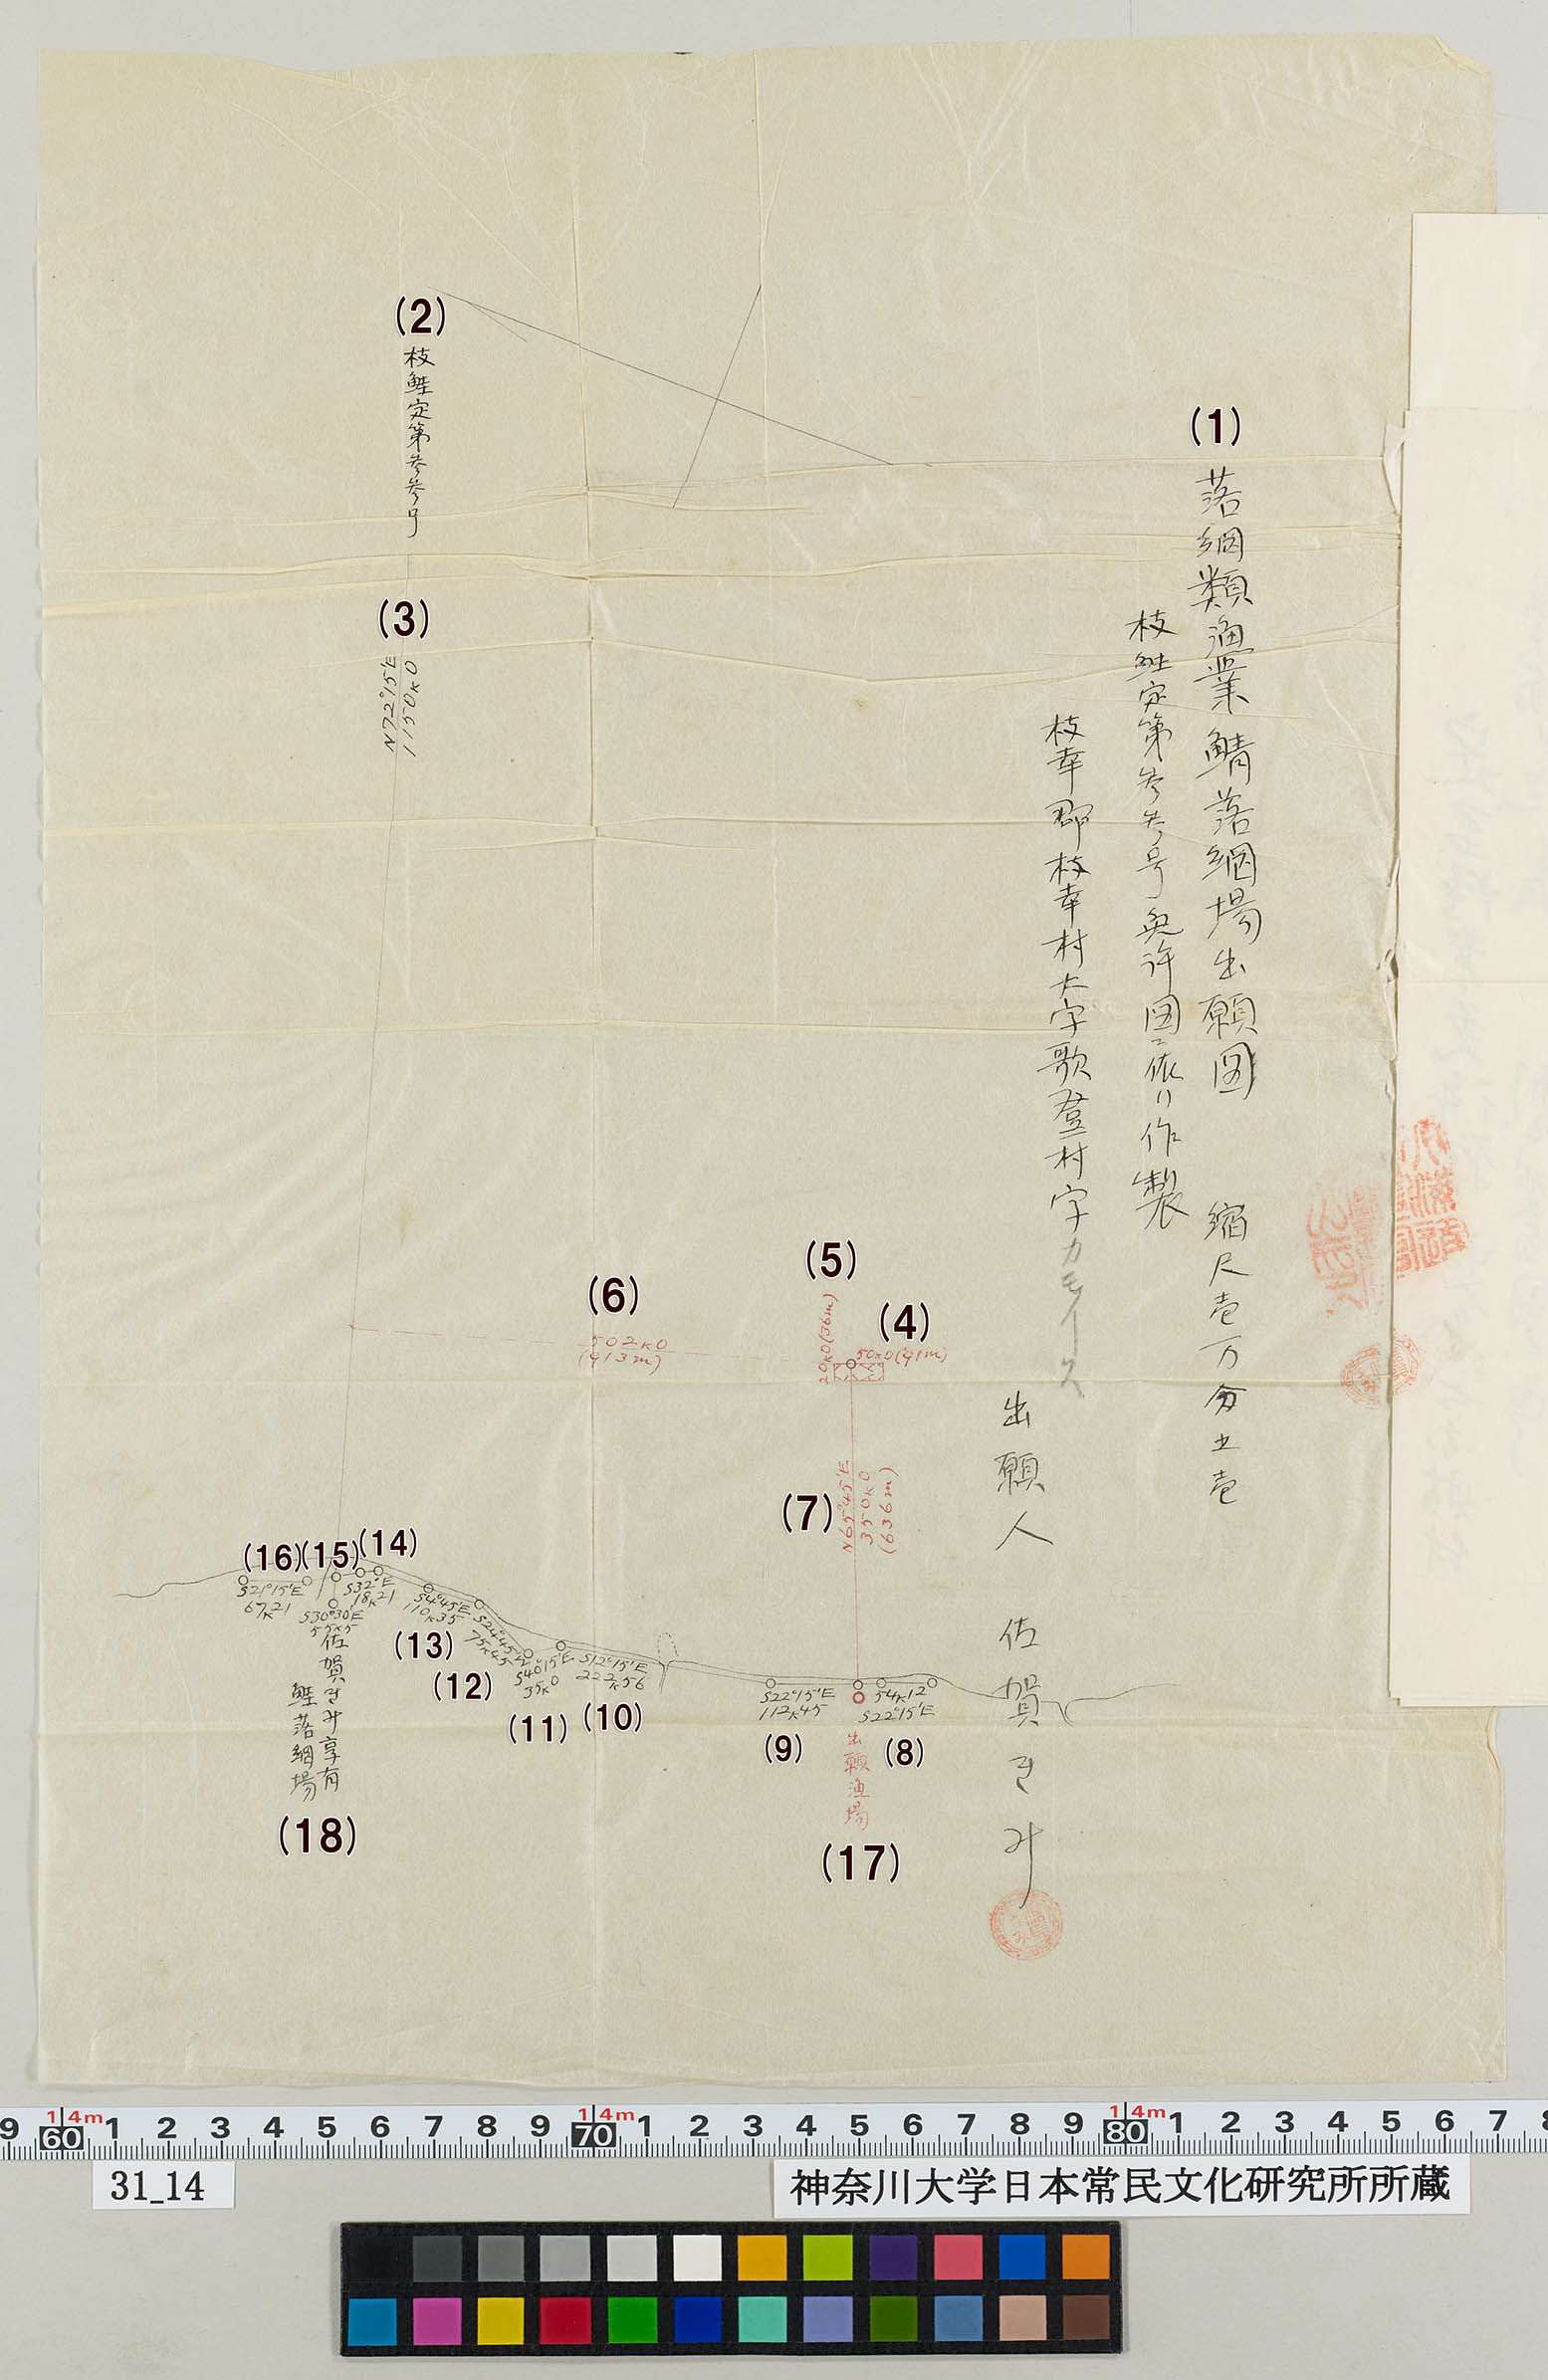 (1)
落網類漁業鯖落網場出願図 縮尺壱万分之壱
枝鮭定第参参号免許図ニ依リ作製
枝幸郡枝幸村大字歌登村字カモイース
出願人 佐賀きみ
(2)
枝鮭定第参参号
(3)
N72°15′E
1150K0
(4)
50K0(91m)
(5)
20K0(36m)
(6)
502K0
(913m)
(7)
N65°45′E
350K0
(636m)
(8)
54K12
S22°15′E
(9)
S22°15′E
112K45
(10)
S12°15′E
222K56
(11)
S40°15′E
35K0
(12)
S24°45′E
75K45
(13)
S4°45′E
110K35
(14)
S32°E
18K21
(15)
S30°30′E
55K5
(16)
S21°15′E
67K21
出願漁場
(17)
佐賀きみ享有
鮭落網場
(18)
9 60 1 2 3 4 5 6 7 8 9 70 1 2 3 4 5 6 7 8 9 80 1 2 3 4 5 6 7 8
14m 14m 14m
31_14
神奈川大学日本常民文化研究所所蔵